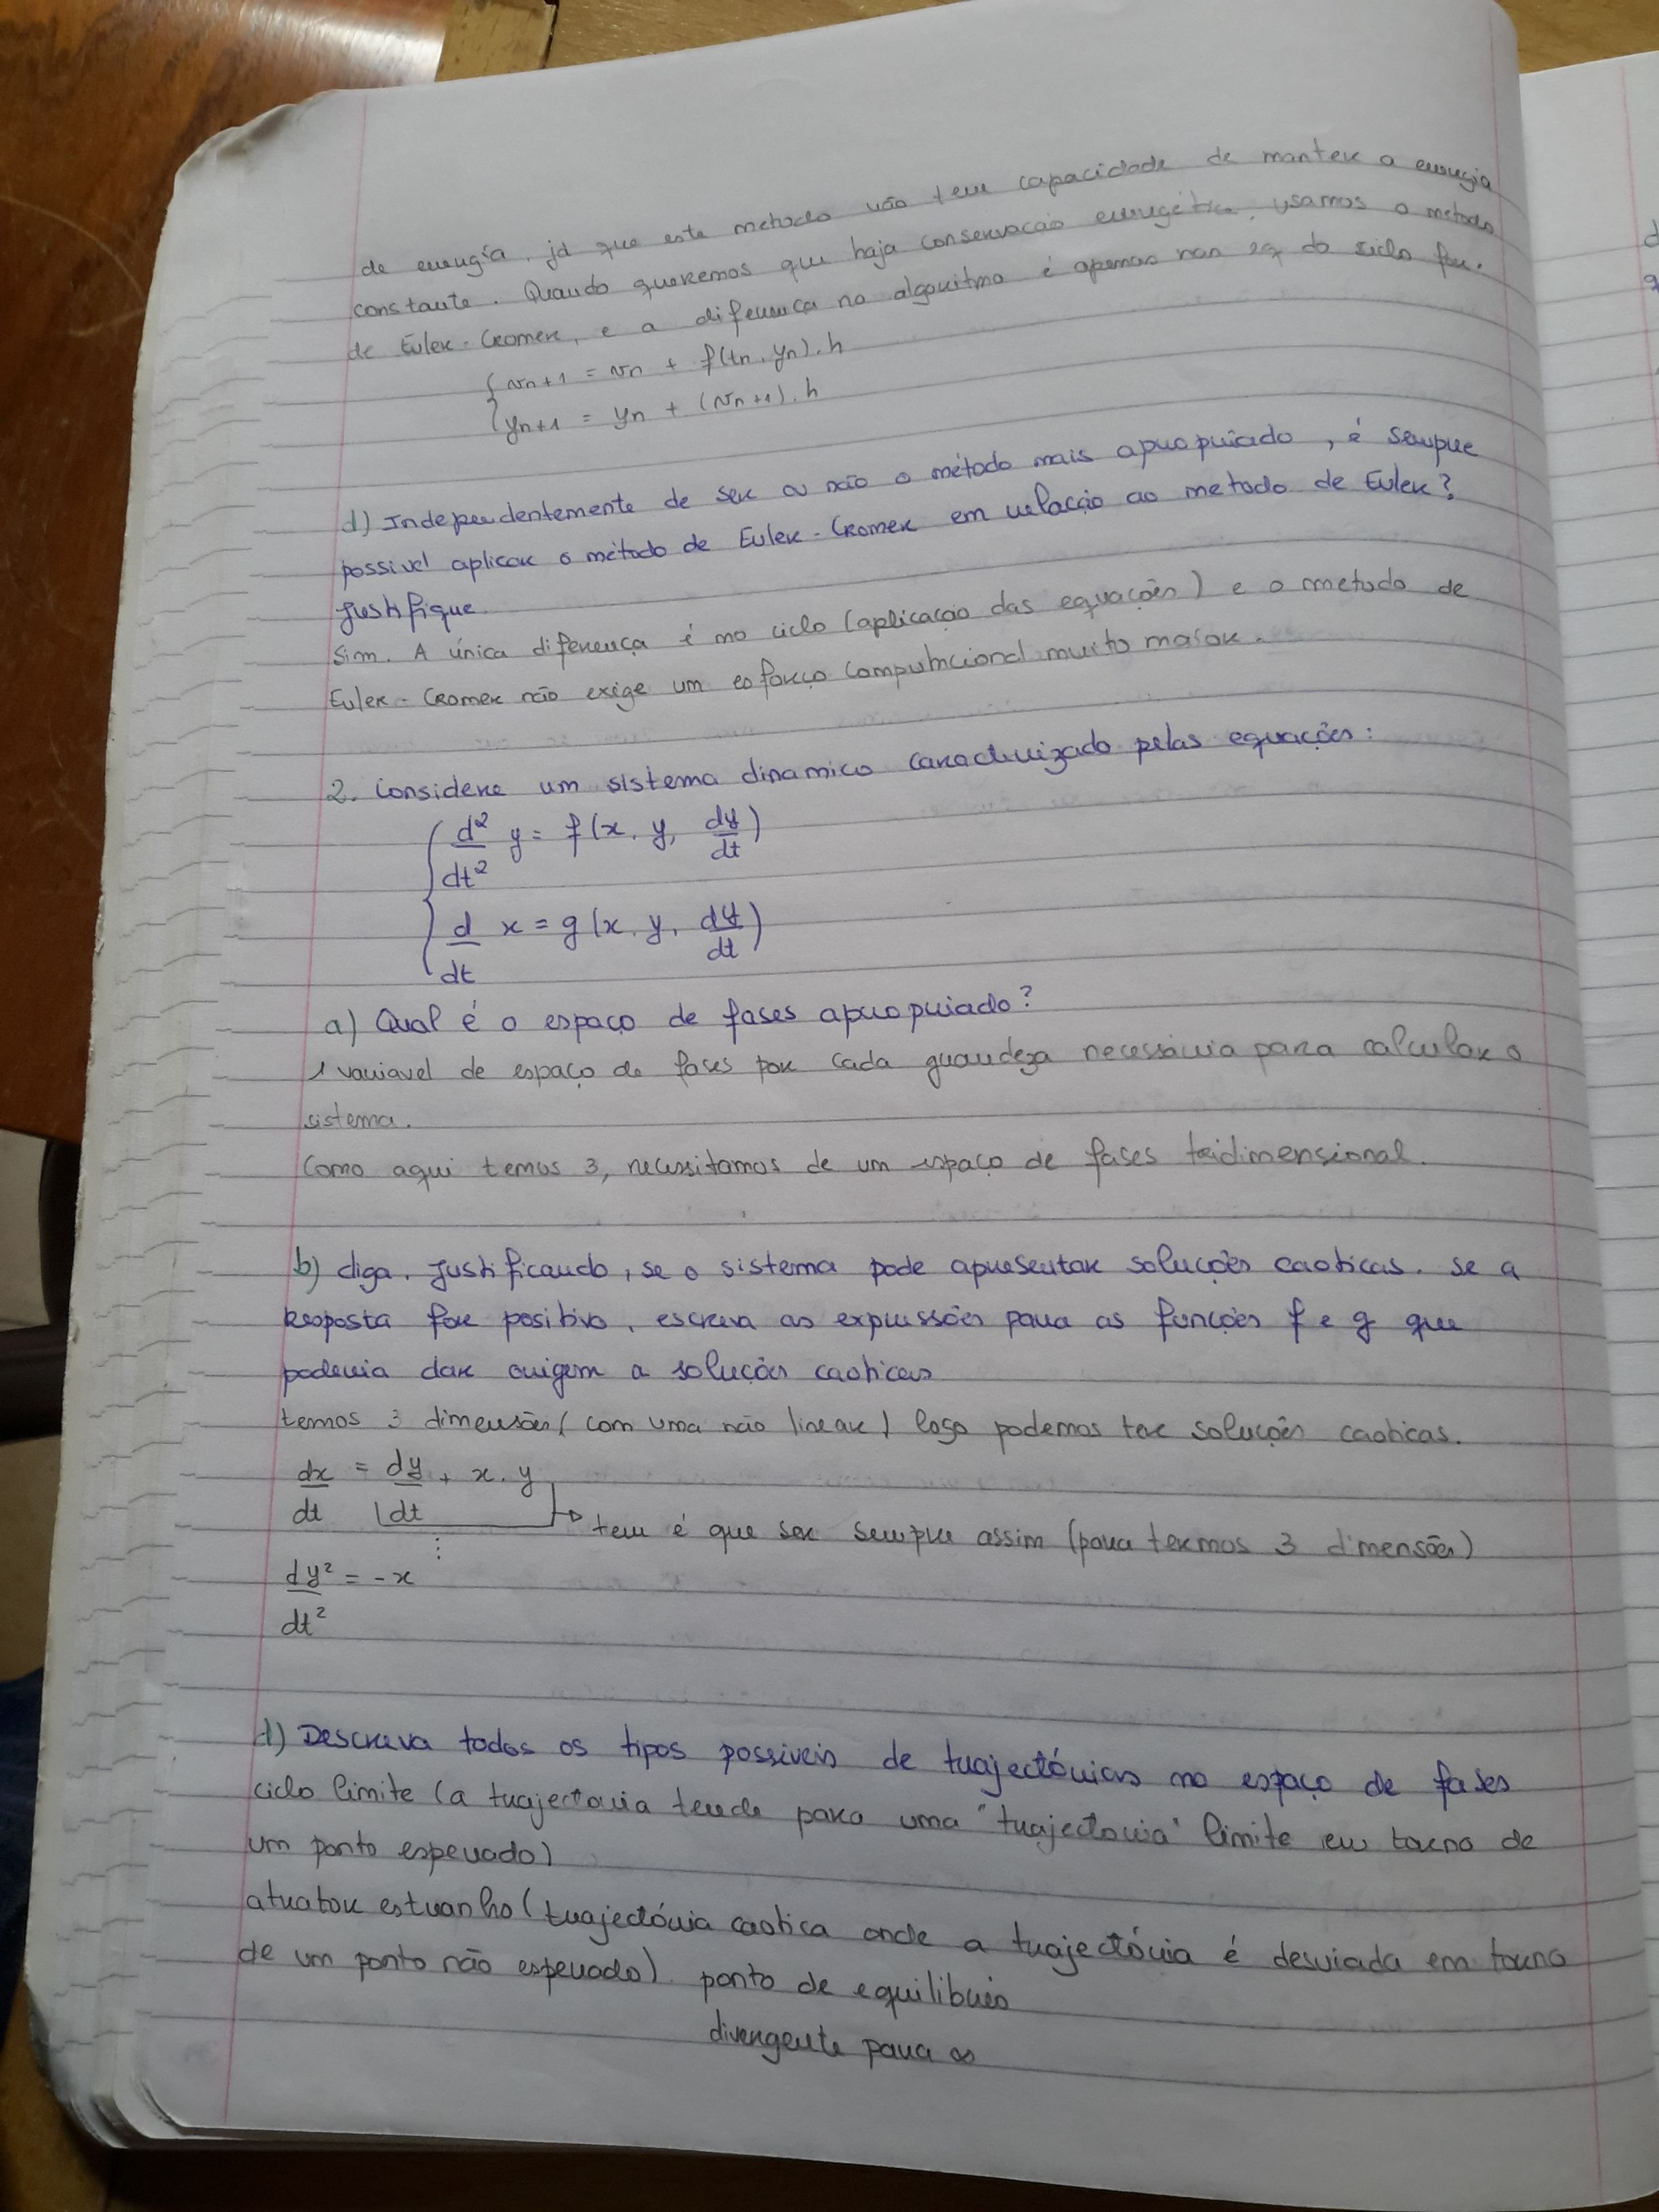 de energia, já que este metodo não tem capacidade de manter a energia
constante. Quando queremos que haja conservação energética, usamos o metodo
de Euler-Cromer, e a diferença no algoritmo é apenas nas eq do ciclo for.
{ vn+1 = vn + f(tn, yn).h
{ yn+1 = yn + (vn+1).h
d) Independentemente de ser ou não o método mais apropriado, é sempre
possivel aplicar o método de Euler-Cromer em relacção ao metodo de Euler?
Justifique.
Sim. A única diferença é no ciclo (aplicação das equações) e o metodo de
Euler-Cromer não exige um esforço computacional muito maior.
2. Considere um sistema dinamico caracterizado pelas equações:
{ d²/dt² y = f(x, y, dy/dt)
{ d/dt x = g(x, y, dy/dt)
a) Qual é o espaço de fases apropriado?
1 variavel de espaço de fases por cada grandeza necessária para calcular o
sistema.
Como aqui temos 3, necessitamos de um espaço de fases tridimensional.
b) diga, justificando, se o sistema pode apresentar soluções caoticas. Se a
resposta for positiva, escreva as expressões para as funções f e g que
poderia dar origem a soluções caoticas
temos 3 dimensões (com uma não linear) logo podemos ter soluções caoticas.
dx/dt = dy/dt + x.y
↳ tem é que ser sempre assim (para termos 3 dimensões)
⋮
dy²/dt² = -x
d) Descreva todos os tipos possiveis de trajectórias no espaço de fases
ciclo limite (a trajectoria tende para uma "trajectoria" limite em torno de
um ponto esperado)
atrator estranho (trajectória caotica onde a trajectória é desviada em torno
de um ponto não esperado). ponto de equilibrio
divergente para ∞